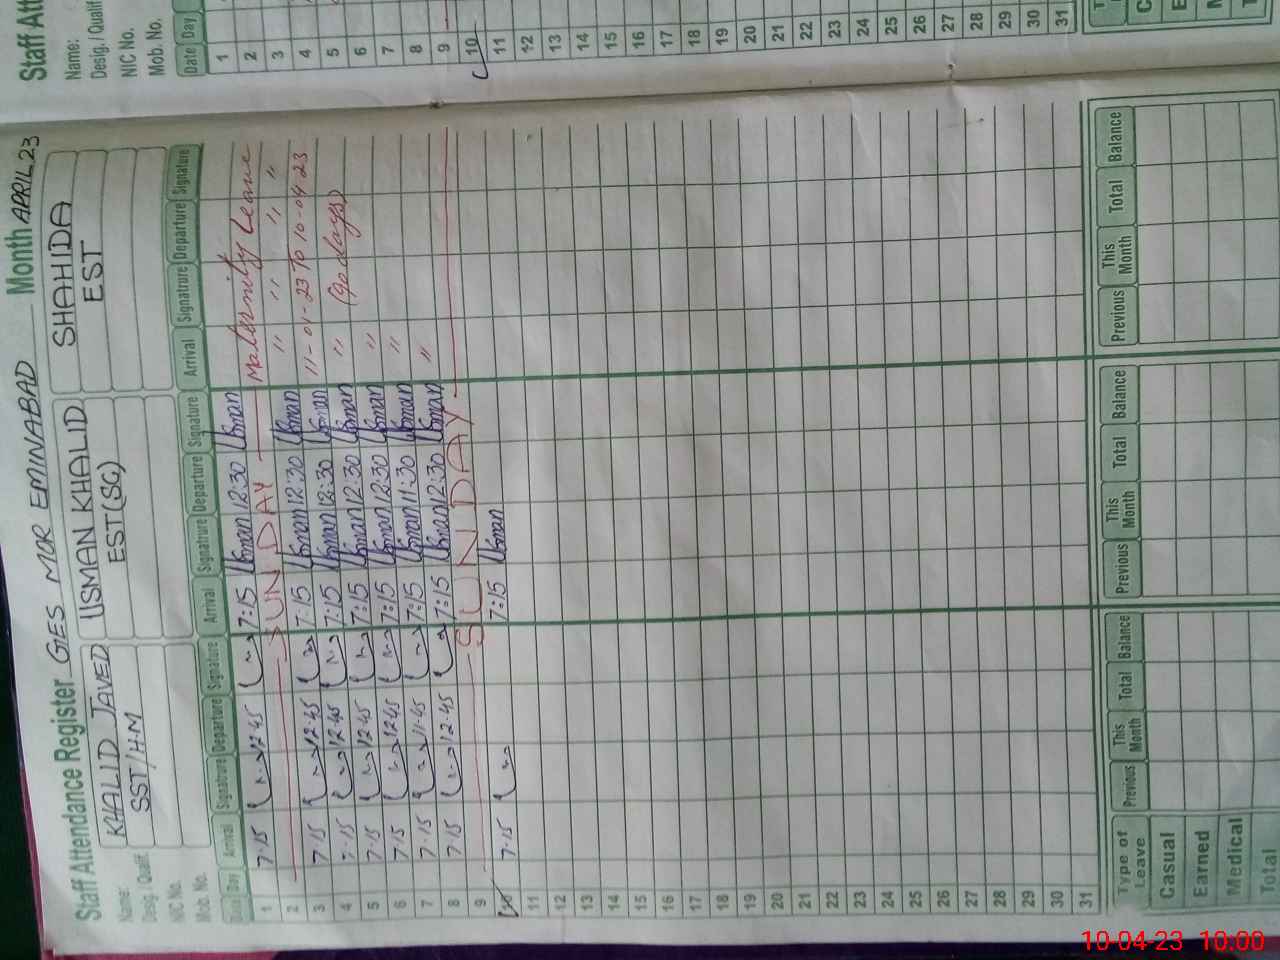 Staff Attendance Register GES MOR EMINABAD Month APRIL.23
Name: KHALID JAVED USMAN KHALID SHAHIDA
Desig. / Qualif. SST/H.M EST(SG) EST
NIC No.
Mob. No.
Date Day Arrival Signatrure Departure Signature Arrival Signatrure Departure Signature Arrival Signatrure Departure Signature
1 7.15 12.45 7:15 Usman 12:30 Usman Maternity Leave
2 SUNDAY " " " "
3 7.15 12.45 7:15 Usman 12:30 Usman 11-01-23 To 10-04-23
4 7.15 12.45 7:15 Usman 12:30 Usman " (90 days)
5 7.15 12.45 7:15 Usman 12:30 Usman "
6 7.15 12.45 7:15 Usman 12:30 Usman "
7 7.15 11.45 7:15 Usman 11:30 Usman "
8 7.15 12.45 7:15 Usman 12:30 Usman
9 SUNDAY
10 7.15 7:15 Usman
11
12
13
14
15
16
17
18
19
20
21
22
23
24
25
26
27
28
29
30
31
Type of Leave Previous This Month Total Balance Previous This Month Total Balance Previous This Month Total Balance
Casual
Earned
Medical
Total
Staff Att
Name:
Desig. / Qualif
NIC No.
Mob. No.
Date Day
1
2
3
4
5
6
7
8
9
10
11
12
13
14
15
16
17
18
19
20
21
22
23
24
25
26
27
28
29
30
31
10-04-23 10:00